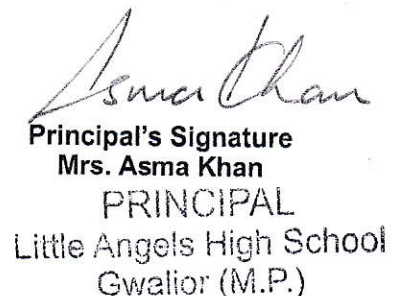 Asma Khan
Principal's Signature
Mrs. Asma Khan
PRINCIPAL
Little Angels High School
Gwalior (M.P.)